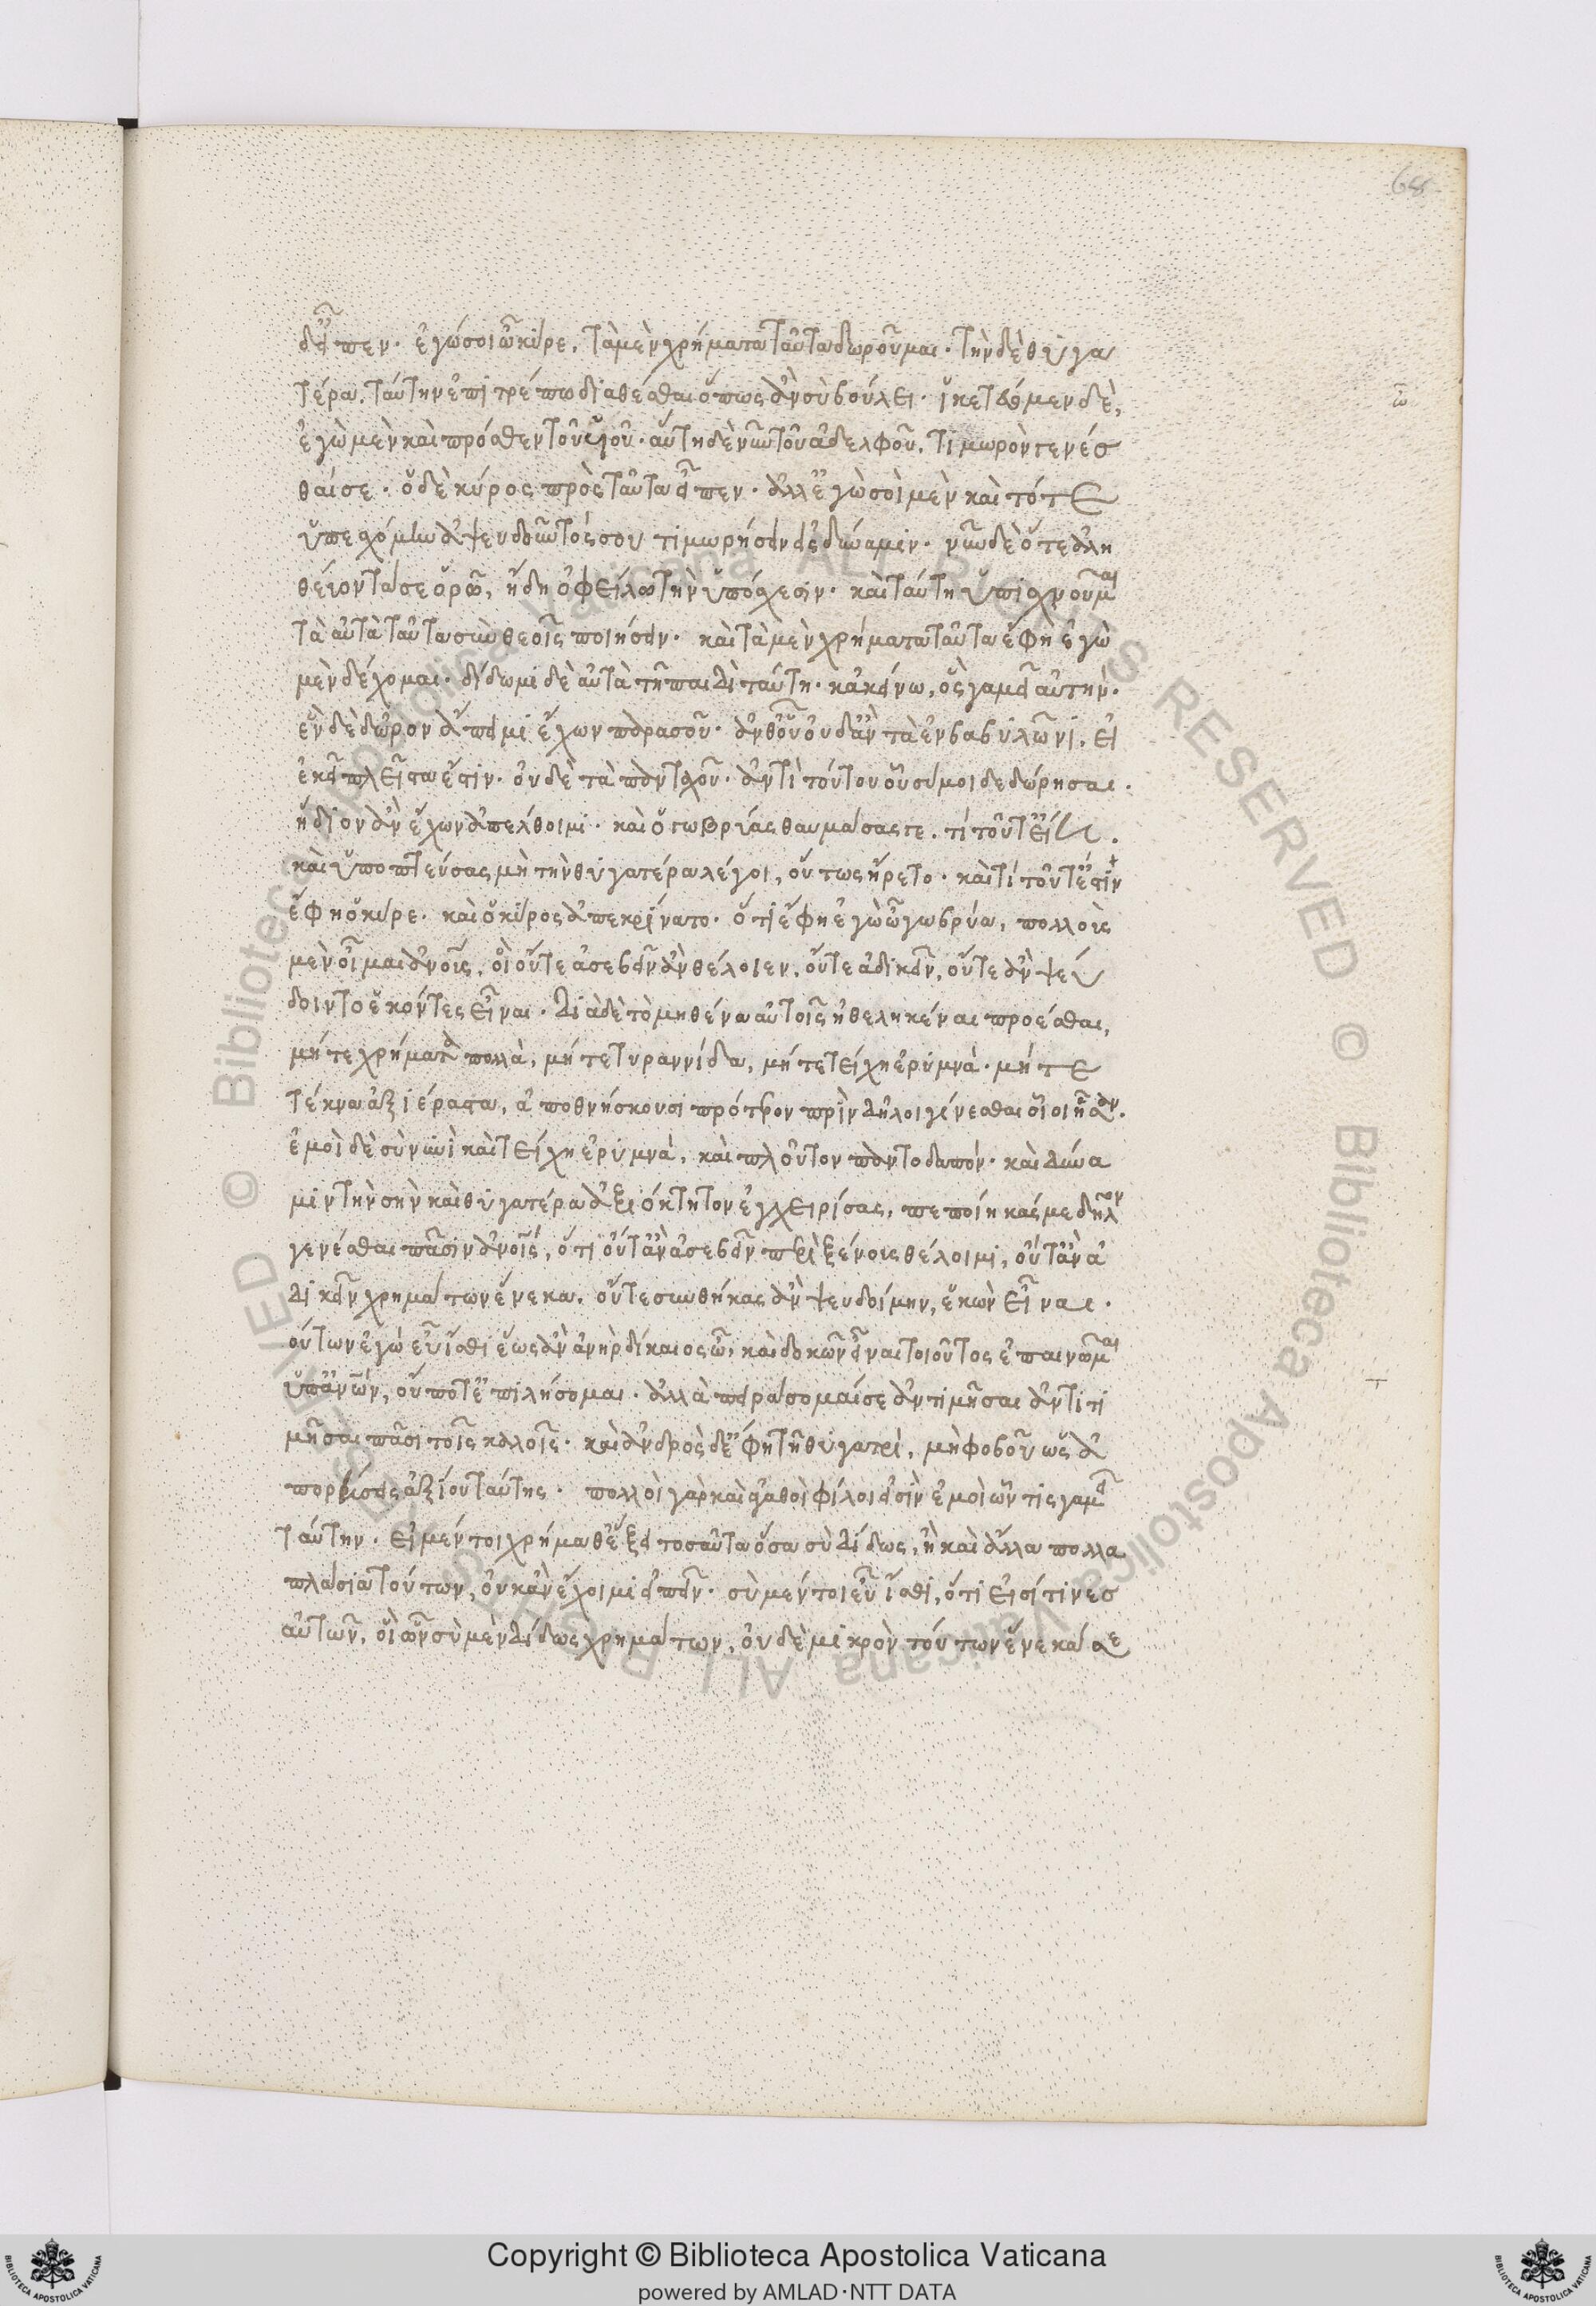 68
δ' εἶπεν· ἐγώ σοι ὦ κῦρε, τὰ μὲν χρήματα ταῦτα δωροῦμαι· τὴν δὲ θυγα
τέρα ταύτην ἐπιτρέπω διαθέσθαι ὅπως ἂν σὺ βούλει· ἱκετεύομεν δὲ,
ἐγὼ μὲν καὶ πρόσθεν τοῦ υἱοῦ· αὕτη δὲ νῦν τοῦ ἀδελφοῦ, τιμωρὸν γενέσ
θαί σε· ὁ δὲ κύρος πρὸς ταῦτα εἶπεν· ἀλλ' ἐγὼ σοὶ μὲν καὶ τότε
ὑπεσχόμην ἀψευδοῦντός σου τιμωρήσειν εἰς δύναμιν· νῦν δὲ ὅτε ἀλη
θεύοντά σε ὁρῶ, ἤδη ὀφείλω τὴν ὑπόσχεσιν· καὶ ταύτη ὑπισχνοῦμαι
τὰ αὐτὰ ταῦτα σὺν θεοῖς ποιήσειν· καὶ τὰ μὲν χρήματα ταῦτα ἔφη ἐγὼ
μὲν δέχομαι· δίδωμι δὲ αὐτὰ τῆ παιδὶ ταύτη· κἀκείνω, ὃς γαμεῖ αὐτήν·
ἓν δὲ δῶρον ἄπειμι ἔχων παρὰ σοῦ· ἀνθ' οὗ οὐδ' ἂν τὰ ἐν βαβυλῶνι, εἰ
ἐκεῖ πλεῖστα ἐστίν· οὐδὲ τὰ πανταχοῦ· ἀντὶ τούτου οὗ σύ μοι δεδώρησαι·
ἥδιον ἂν ἔχων ἀπέλθοιμι· καὶ ὁ γωβρύας θαυμάσας τε, τί τοῦτ' εἴη.
καὶ ὑποπτεύσας μὴ τὴν θυγατέρα λέγοι, οὕτως ἤρετο· καὶ τί τοῦτ' ἐστὶν
ἔφη ὦ κῦρε· καὶ ὁ κῦρος ἀπεκρίνατο· ὅτι ἔφη ἐγὼ ὦ γωβρύα, πολλοὺς
μὲν οἶμαι ἀνους, οἳ οὔτε ἀσεβεῖν ἂν θέλοιεν, οὔτε ἀδικεῖν, οὔτε ἂν ψεύ
δοιντο ἑκόντες εἶναι· διὰ δὲ τὸ μηθένα αὐτοῖς ἠθεληκέναι προέσθαι,
μήτε χρήματα πολλὰ, μήτε τυραννίδα, μήτε τείχη ἐρυμνὰ· μήτε
τέκνα ἀξιέραστα, ἀποθνήσκουσι πρότερον πρὶν δῆλοι γίνεσθαι οἷοι ἦσαν.
ἐμοὶ δὲ σὺ νυνὶ καὶ τείχη ἐρυμνά, καὶ πλοῦτον παντοδαπόν· καὶ δύνα
μιν τὴν σὴν καὶ θυγατέρα ἀξιόκτητον ἐγχειρίσας, πεποίηκάς με δῆλον
γενέσθαι πᾶσιν ἀνοις, ὅτι οὔτ' ἂν ἀσεβεῖν περὶ ξένους θέλοιμι, οὔτ' ἂν ἀ
δικεῖν χρημάτων ἕνεκα, οὔτε συνθήκας ἂν ψευδοίμην, ἑκὼν εἶναι.
οὕτων ἐγὼ εὖ ἴσθι ἕως ἂν ἀνὴρ δίκαιος ὦ, καὶ δοκῶν εἶναι τοιοῦτος ἐπαινῶμαι
ὑπ' ἀνων, οὔποτ' ἐπιλήσομαι· ἀλλὰ πειράσομαί σε ἀντιμῆσαι ἀντιτι
μῆσαι πᾶσι τοῖς καλοῖς· καὶ ἀνδρὸς δ' ἔφη τῆ θυγατρὶ, μὴ φοβοῦ ὡς ἀ
πορήσεις ἀξίου ταύτης· πολλοὶ γὰρ καὶ ἀγαθοὶ φίλοι εἰσὶν ἐμοὶ ὧν τις γαμεῖ
ταύτην· εἰ μέντοι χρήμαθ' ἕξει τοσαῦτα ὅσα σὺ δίδως, ἢ καὶ ἄλλα πολλα
πλάσια τούτων, οὐκ ἂν ἔχοιμι εἰπεῖν· σὺ μέντοι εὖ ἴσθι, ὅτι εἰσί τινες
αὐτῶν, οἳ ὧν σὺ μὲν δίδως χρημάτων, οὐδὲ μικρὸν τούτων ἕνεκά σε
Copyright © Biblioteca Apostolica Vaticana
powered by AMLAD·NTT DATA